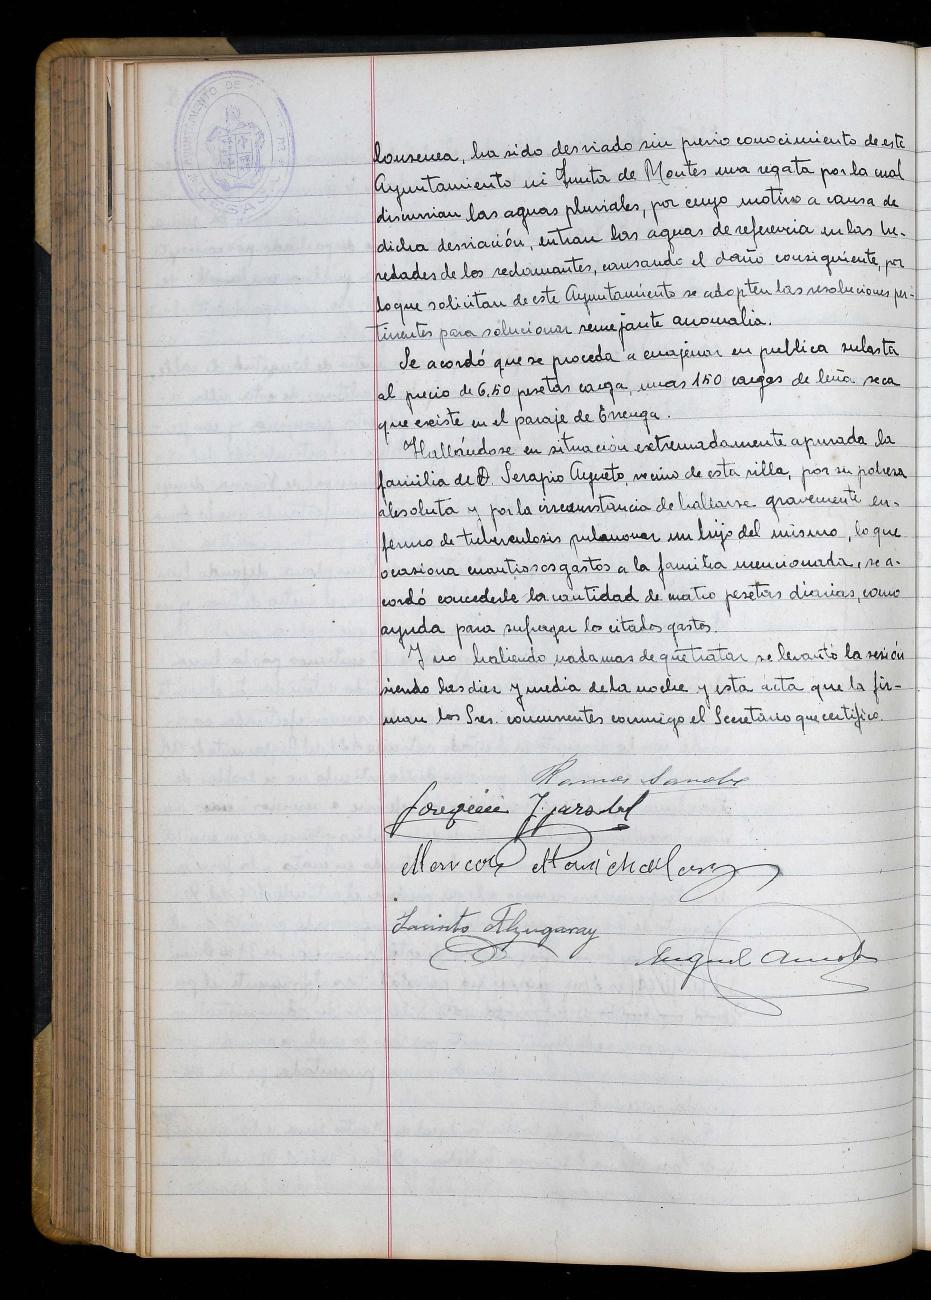 AYUNTAMIENTO DE
LESACA
ha sido desviado sin previo conocimiento de este
Ayuntamiento ni Junta de Montes una regata por la cual
discurrian las aguas pluviales, por cuyo motivo a causa de
dicha desviación, entran las aguas de referencia en las he-
redades de los reclamantes, causando el daño consiguiente, por
lo que solicitan de este Ayuntamiento se adopten las resoluciones per-
tinentes para solucionar semejante anomalia.
Se acordó que se proceda a enajenar en publica subasta
al precio de 6,50 pesetas carga, unas 150 cargas de leña seca
que existe en el paraje de Errenga.
Hallándose en situación extremadamente apurada la
familia de D. Serapio Agueto, vecino de esta villa, por su pobreza
absoluta y por la circunstancia de hallarse gravemente en-
fermo de tuberculosis pulmonar un hijo del mismo, lo que
ocasiona cuantiosos gastos a la familia mencionada, se a-
cordó concederle la cantidad de cuatro pesetas diarias, como
ayuda para sufragar los citados gastos.
Y no habiendo nada mas de que tratar se levantó la sesión
siendo las diez y media de la noche y esta acta que la fir-
man los Sres. concurrentes conmigo el Secretario que certifico.
Ramos
Joaquin
Marcos Marichalar
Jacinto Alzugaray
Miguel